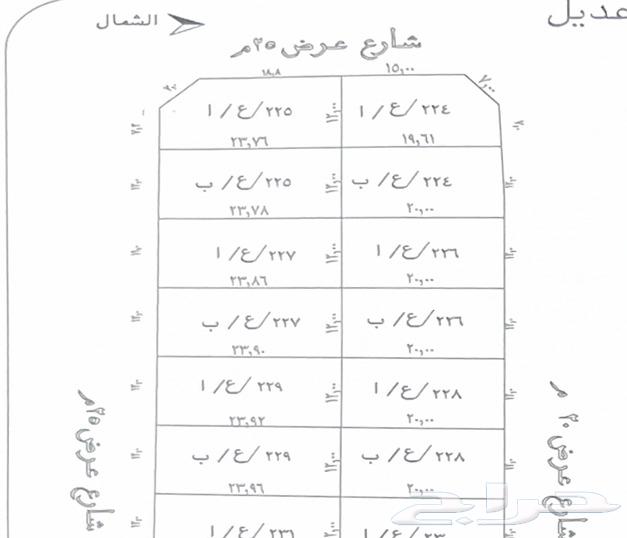 عديل
الشمال
شارع عرض ٢٥م
١٥,٠٠
١٨,٨
٧,٠٠
٢٢٤/ع/ا
٢٢٥/ع/ا
١٢,٠٠
١٩,٦١
٢٣,٧٦
٢٢٤/ع/ب
٢٢٥/ع/ب
١٢,٠٠
٢٠,٠٠
٢٣,٧٨
٢٢٦/ع/ا
٢٢٧/ع/ا
١٢,٠٠
٢٠,٠٠
٢٣,٨٦
٢٢٦/ع/ب
٢٢٧/ع/ب
١٢,٠٠
٢٠,٠٠
٢٣,٩٠
٢٢٨/ع/ا
٢٢٩/ع/ا
١٢,٠٠
٢٠,٠٠
٢٣,٩٢
٢٢٨/ع/ب
٢٢٩/ع/ب
١٢,٠٠
٢٠,٠٠
٢٣,٩٦
٢٣١/ع/ا
شارع عرض ٢٠ م
شارع عرض ٢٥م
حراج